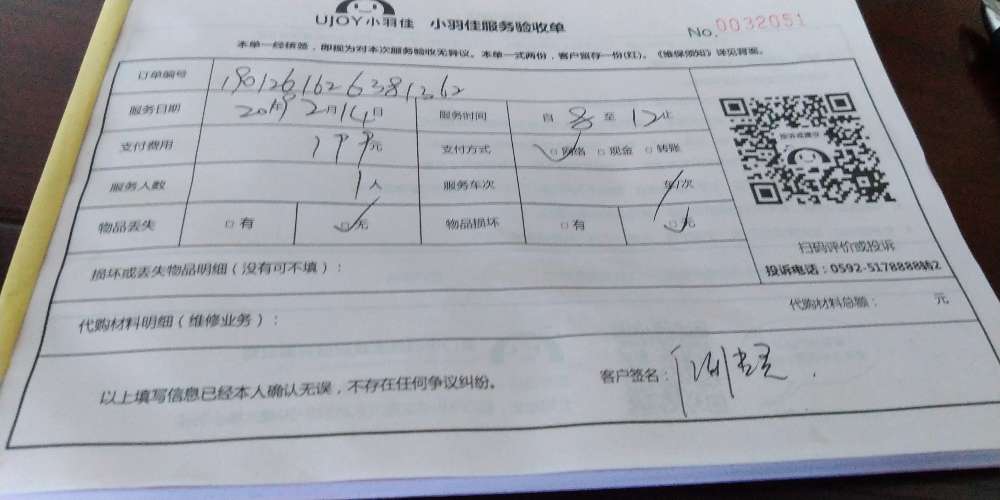 UJOY小羽佳 小羽佳服务验收单
No.0032051
本单一经核签，即视为对本次服务验收无异议。本单一式两份，客户留存一份(红)。《维保须知》详见背面。
订单编号 1901261626381262
服务日期 2019年2月14日 服务时间 自 8 至 12 止
支付费用 199元 支付方式 □网络 □现金 □转账
服务人数 1人 服务车次 车/次
物品丢失 □有 □无 物品损坏 □有 □无
投诉或建议
扫码评价或投诉
投诉电话：0592-5178888转2
损坏或丢失物品明细（没有可不填）：
代购材料明细（维修业务）： 代购材料总额： 元
以上填写信息已经本人确认无误，不存在任何争议纠纷。 客户签名：